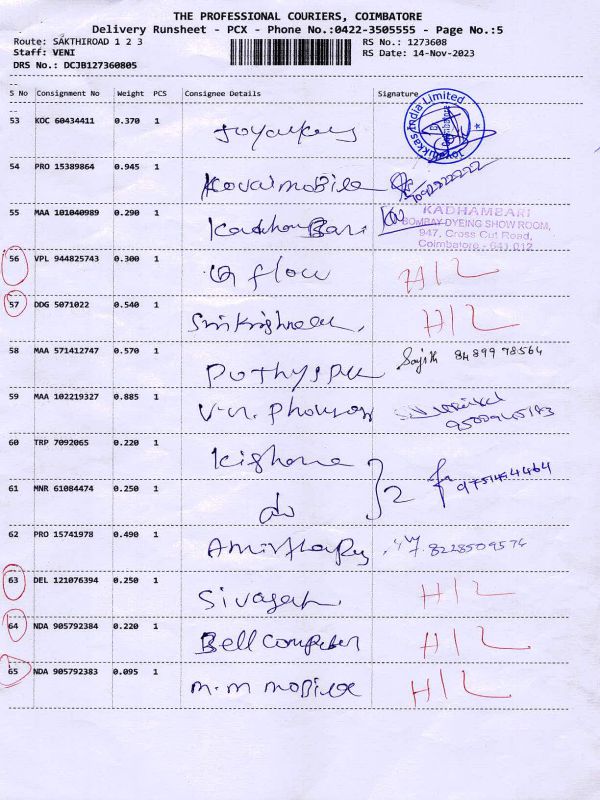 THE PROFESSIONAL COURIERS, COIMBATORE
Delivery Runsheet - PCX - Phone No.:0422-3505555 - Page No.:5
Route: SAKTHIROAD 1 2 3 RS No.: 1273608
Staff: VENI RS Date: 14-Nov-2023
DRS No.: DCJB127360805
S No Consignment No Weight PCS Consignee Details Signature
53 KDC 60434411 0.370 1
Joyalukkas India Limited
54 PRO 15389864 0.945 1 Kovai mobile
55 MAA 101040989 0.290 1 Kadham Bari
KADHAMBARI
BOMBAY DYEING SHOW ROOM,
947, Cross Cut Road,
Coimbatore - 641 012
56 VPL 944825743 0.300 1 flow H/L
57 DDG 5071022 0.540 1 H/L
58 MAA 571412747 0.570 1 Pothys 84899 78564
59 MAA 102219327 0.885 1 V.N.
60 TRP 7092065 0.220 1 Kishore
61 MNR 61084474 0.250 1 do } 2
62 PRO 15741978 0.490 1 8228509574
63 DEL 121076394 0.250 1 H/L
64 NDA 905792384 0.220 1 Bell Computer H/L
65 NDA 905792383 0.095 1 M.M mobile H/L